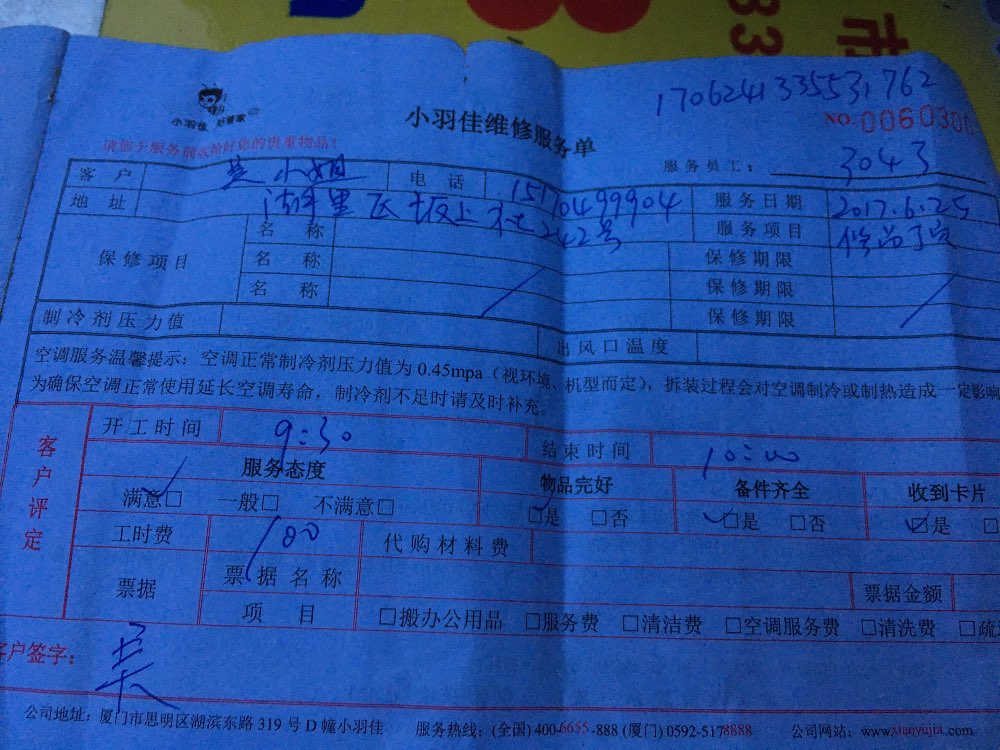 33 市
17062413355 31762
小羽佳 好管家
小羽佳维修服务单
NO. 0060300
请您于服务前收拾好您的贵重物品！
服务员工： 3043
客户 吴小姐 电话 15170499904 服务日期 2017.6.25
地址 湖里区坂上社242号 服务项目
保修项目 名称 保修期限
名称 保修期限
名称 保修期限
制冷剂压力值 出风口温度
空调服务温馨提示：空调正常制冷剂压力值为0.45mpa（视环境、机型而定），拆装过程会对空调制冷或制热造成一定影响
为确保空调正常使用延长空调寿命，制冷剂不足时请及时补充。
客户评定
开工时间 9:30 结束时间 10:00
服务态度 物品完好 备件齐全 收到卡片
满意☑ 一般□ 不满意□ ☑是 □否 ☑是 □否 ☑是 □
工时费 100 代购材料费
票据 票据名称 票据金额
项目 □搬办公用品 □服务费 □清洁费 □空调服务费 □清洗费 □疏
客户签字： 吴
公司地址：厦门市思明区湖滨东路319号D幢小羽佳 服务热线：(全国) 400-6655-888 (厦门) 0592-5178888 公司网站：www.xiaoyujia.com